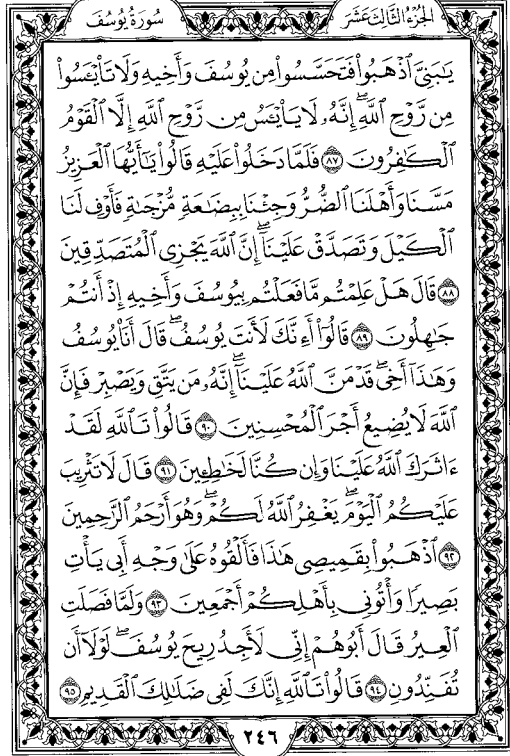 الجزء الثالث عشر
سورة يوسف
يَٰبَنِيَّ ٱذۡهَبُواْ فَتَحَسَّسُواْ مِن يُوسُفَ وَأَخِيهِ وَلَا تَاْيۡـَٔسُواْ
مِن رَّوۡحِ ٱللَّهِۖ إِنَّهُۥ لَا يَاْيۡـَٔسُ مِن رَّوۡحِ ٱللَّهِ إِلَّا ٱلۡقَوۡمُ
ٱلۡكَٰفِرُونَ ٨٧ فَلَمَّا دَخَلُواْ عَلَيۡهِ قَالُواْ يَٰٓأَيُّهَا ٱلۡعَزِيزُ
مَسَّنَا وَأَهۡلَنَا ٱلضُّرُّ وَجِئۡنَا بِبِضَٰعَةٖ مُّزۡجَىٰةٖ فَأَوۡفِ لَنَا
ٱلۡكَيۡلَ وَتَصَدَّقۡ عَلَيۡنَآۖ إِنَّ ٱللَّهَ يَجۡزِي ٱلۡمُتَصَدِّقِينَ
٨٨ قَالَ هَلۡ عَلِمۡتُم مَّا فَعَلۡتُم بِيُوسُفَ وَأَخِيهِ إِذۡ أَنتُمۡ
جَٰهِلُونَ ٨٩ قَالُوٓاْ أَءِنَّكَ لَأَنتَ يُوسُفُۖ قَالَ أَنَا۠ يُوسُفُ
وَهَٰذَآ أَخِيۖ قَدۡ مَنَّ ٱللَّهُ عَلَيۡنَآۖ إِنَّهُۥ مَن يَتَّقِ وَيَصۡبِرۡ فَإِنَّ
ٱللَّهَ لَا يُضِيعُ أَجۡرَ ٱلۡمُحۡسِنِينَ ٩٠ قَالُواْ تَٱللَّهِ لَقَدۡ
ءَاثَرَكَ ٱللَّهُ عَلَيۡنَا وَإِن كُنَّا لَخَٰطِـِٔينَ ٩١ قَالَ لَا تَثۡرِيبَ
عَلَيۡكُمُ ٱلۡيَوۡمَۖ يَغۡفِرُ ٱللَّهُ لَكُمۡۖ وَهُوَ أَرۡحَمُ ٱلرَّٰحِمِينَ
٩٢ ٱذۡهَبُواْ بِقَمِيصِي هَٰذَا فَأَلۡقُوهُ عَلَىٰ وَجۡهِ أَبِي يَأۡتِ
بَصِيرٗا وَأۡتُونِي بِأَهۡلِكُمۡ أَجۡمَعِينَ ٩٣ وَلَمَّا فَصَلَتِ
ٱلۡعِيرُ قَالَ أَبُوهُمۡ إِنِّي لَأَجِدُ رِيحَ يُوسُفَۖ لَوۡلَآ أَن
تُفَنِّدُونِ ٩٤ قَالُواْ تَٱللَّهِ إِنَّكَ لَفِي ضَلَٰلِكَ ٱلۡقَدِيمِ ٩٥
٢٤٦